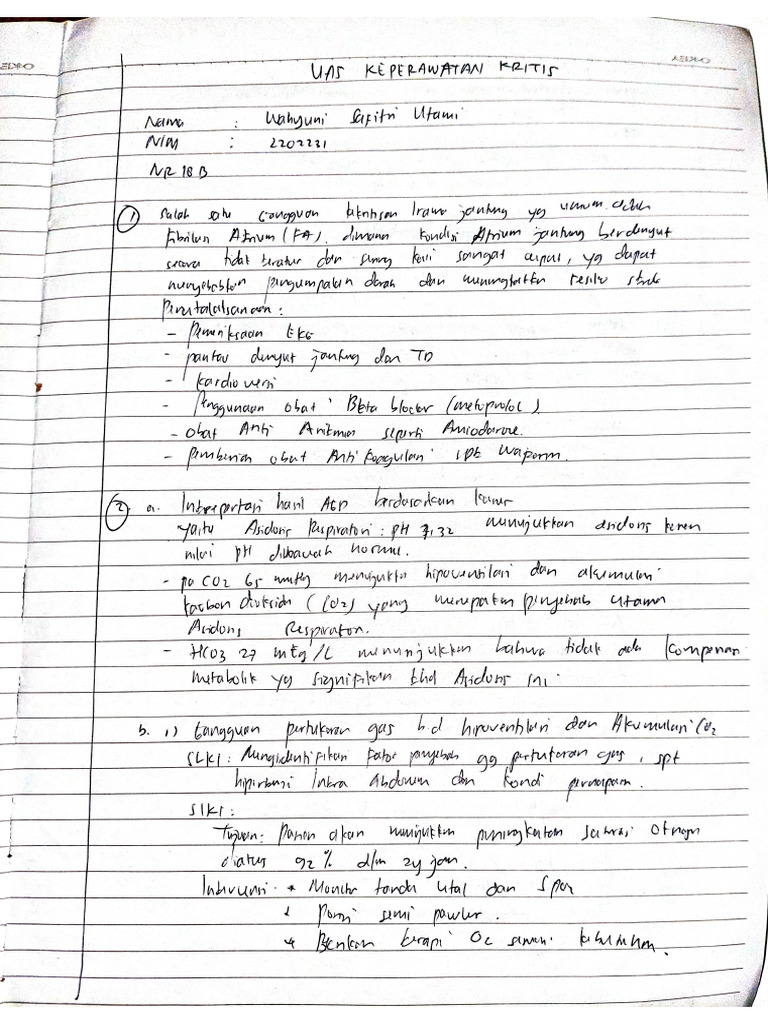 UAS KEPERAWATAN KRITIS
Nama : Wahyuni Safitri Utami
NIM : 2202231
NR 18 B
① Salah satu gangguan irama jantung yg umum adalah
Fibrilasi Atrium (FA). dimana kondisi Atrium jantung berdenyut
secara tidak teratur dan sering kali sangat cepat, yg dapat
menyebabkan penggumpalan darah dan meningkatkan resiko stroke
Penatalaksanaan :
- Pemeriksaan EKG
- pantau denyut jantung dan TD
- kardioversi
- Penggunaan obat Beta blocker (metoprolol)
- Obat Anti Aritmia seperti Amiodarone.
- Pemberian obat Anti Koagulan spt Waparin.
② a. Interpertasi hasil AGD berdasarkan kasus
yaitu Asidosis Respiratori : pH 7,32 menunjukkan asidosis karena
nilai pH dibawah normal.
- pa CO2 65 mmHg menunjukkan hipoventilasi dan akumulasi
karbon dioksida (CO2) yang merupakan penyebab utama
Asidosis Respiratori.
- HCO3 27 mEq/L menunjukkan bahwa tidak ada kompensasi
metabolik yg signifikan thd Asidosis ini.
b. 1) Gangguan pertukaran gas b.d hipoventilasi dan Akumulasi CO2
SLKI : Mengidentifikasi Faktor penyebab gg pertukaran gas, spt
hipertensi Intra Abdomen dan kondisi pernapasan.
SIKI :
Tujuan : Pasien akan menunjukkan peningkatan saturasi Oksigen
diatas 92 % dlm 24 jam.
Intervensi * Monitor tanda vital dan SpO2
* Posisi semi pawler.
* Berikan terapi O2 sesuai kebutuhan.